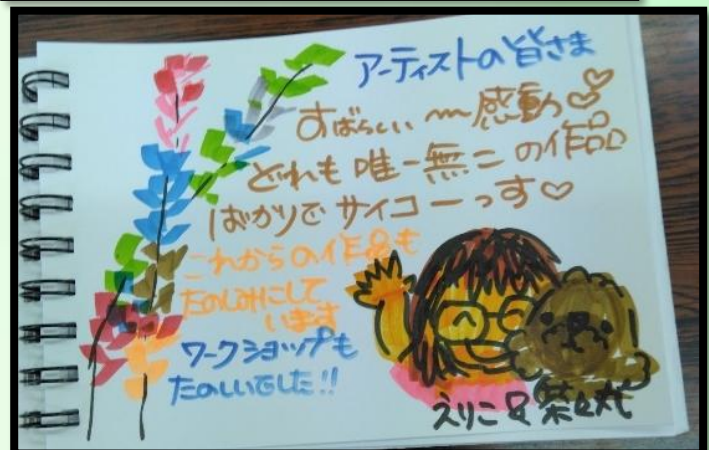 アーティストの皆さま
すばらしい〜感動♡
どれも唯一無二の作品
ばかりでサイコーっす♡
これからの作品も
たのしみにして
います
ワークショップも
たのしいでした!!
えりこ&茶々丸